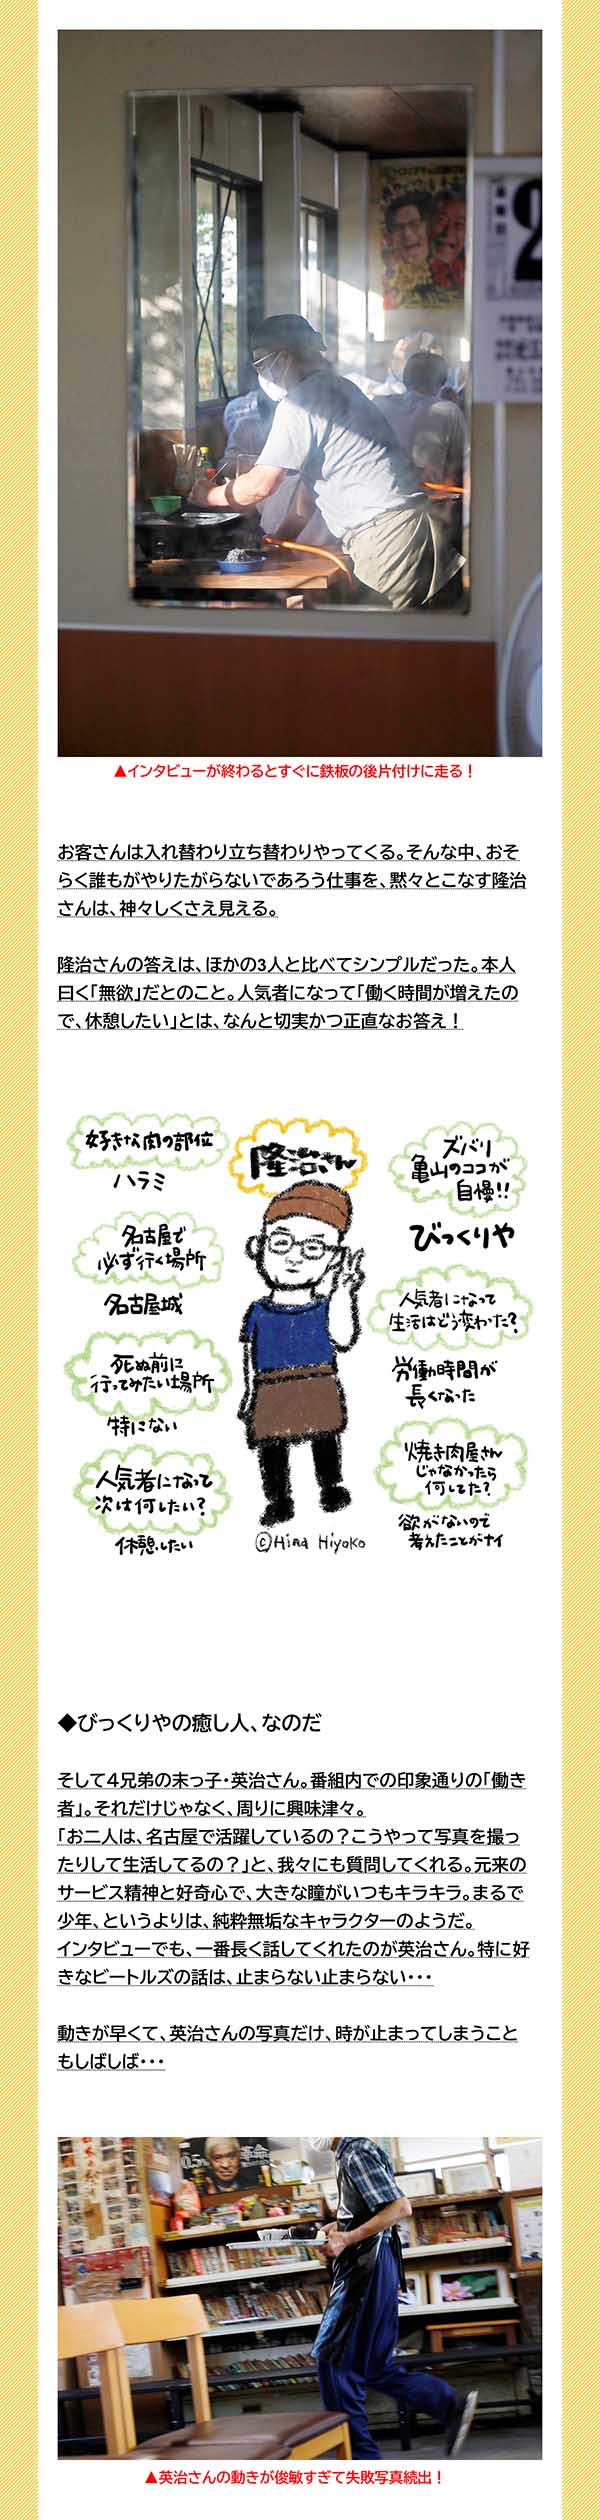 ▲インタビューが終わるとすぐに鉄板の後片付けに走る！
お客さんは入れ替わり立ち替わりやってくる。そんな中、おそ
らく誰もがやりたがらないであろう仕事を、黙々とこなす隆治
さんは、神々しくさえ見える。
隆治さんの答えは、ほかの3人と比べてシンプルだった。本人
曰く「無欲」だとのこと。人気者になって「働く時間が増えたの
で、休憩したい」とは、なんと切実かつ正直なお答え！
隆治さん
好きな肉の部位
ハラミ
名古屋で
必ず行く場所
名古屋城
死ぬ前に
行ってみたい場所
特にない
人気者になって
次は何したい？
休憩したい
ズバリ
亀山のココが
自慢!!
びっくりや
人気者になって
生活はどう変わった？
労働時間が
長くなった
焼き肉屋さん
じゃなかったら
何してた？
欲がないので
考えたことがナイ
©Hina Hiyoko
◆びっくりやの癒し人、なのだ
そして４兄弟の末っ子・英治さん。番組内での印象通りの「働き
者」。それだけじゃなく、周りに興味津々。
「お二人は、名古屋で活躍しているの？こうやって写真を撮っ
たりして生活してるの？」と、我々にも質問してくれる。元来の
サービス精神と好奇心で、大きな瞳がいつもキラキラ。まるで
少年、というよりは、純粋無垢なキャラクターのようだ。
インタビューでも、一番長く話してくれたのが英治さん。特に好
きなビートルズの話は、止まらない止まらない・・・
動きが早くて、英治さんの写真だけ、時が止まってしまうこと
もしばしば・・・
▲英治さんの動きが俊敏すぎて失敗写真続出！